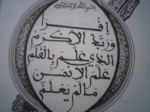 بسم الله الرحمن الرحيم
اقرأ
وربك الأكرم
الذي علم بالقلم
علم الإنسن
ما لم يعلم